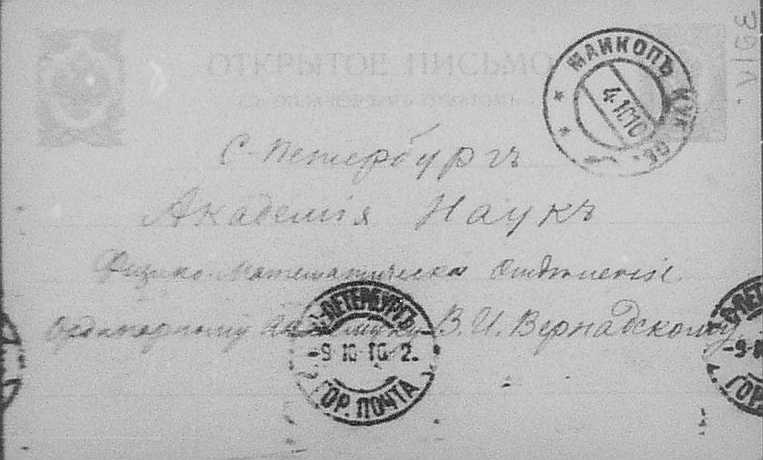 ОТКРЫТОЕ ПИСЬМО
МАЙКОПЪ КУБ. ОБ.
4.10.10
С-Петербургъ
Академія Наукъ
Физико-Математическое Отдѣленіе
Ординарному В. И. Вернадскому
С-ПЕТЕРБУРГЪ
-9.10.10.2.
ГОР. ПОЧТА
С-ПЕТЕ
-9.1
ГОР.